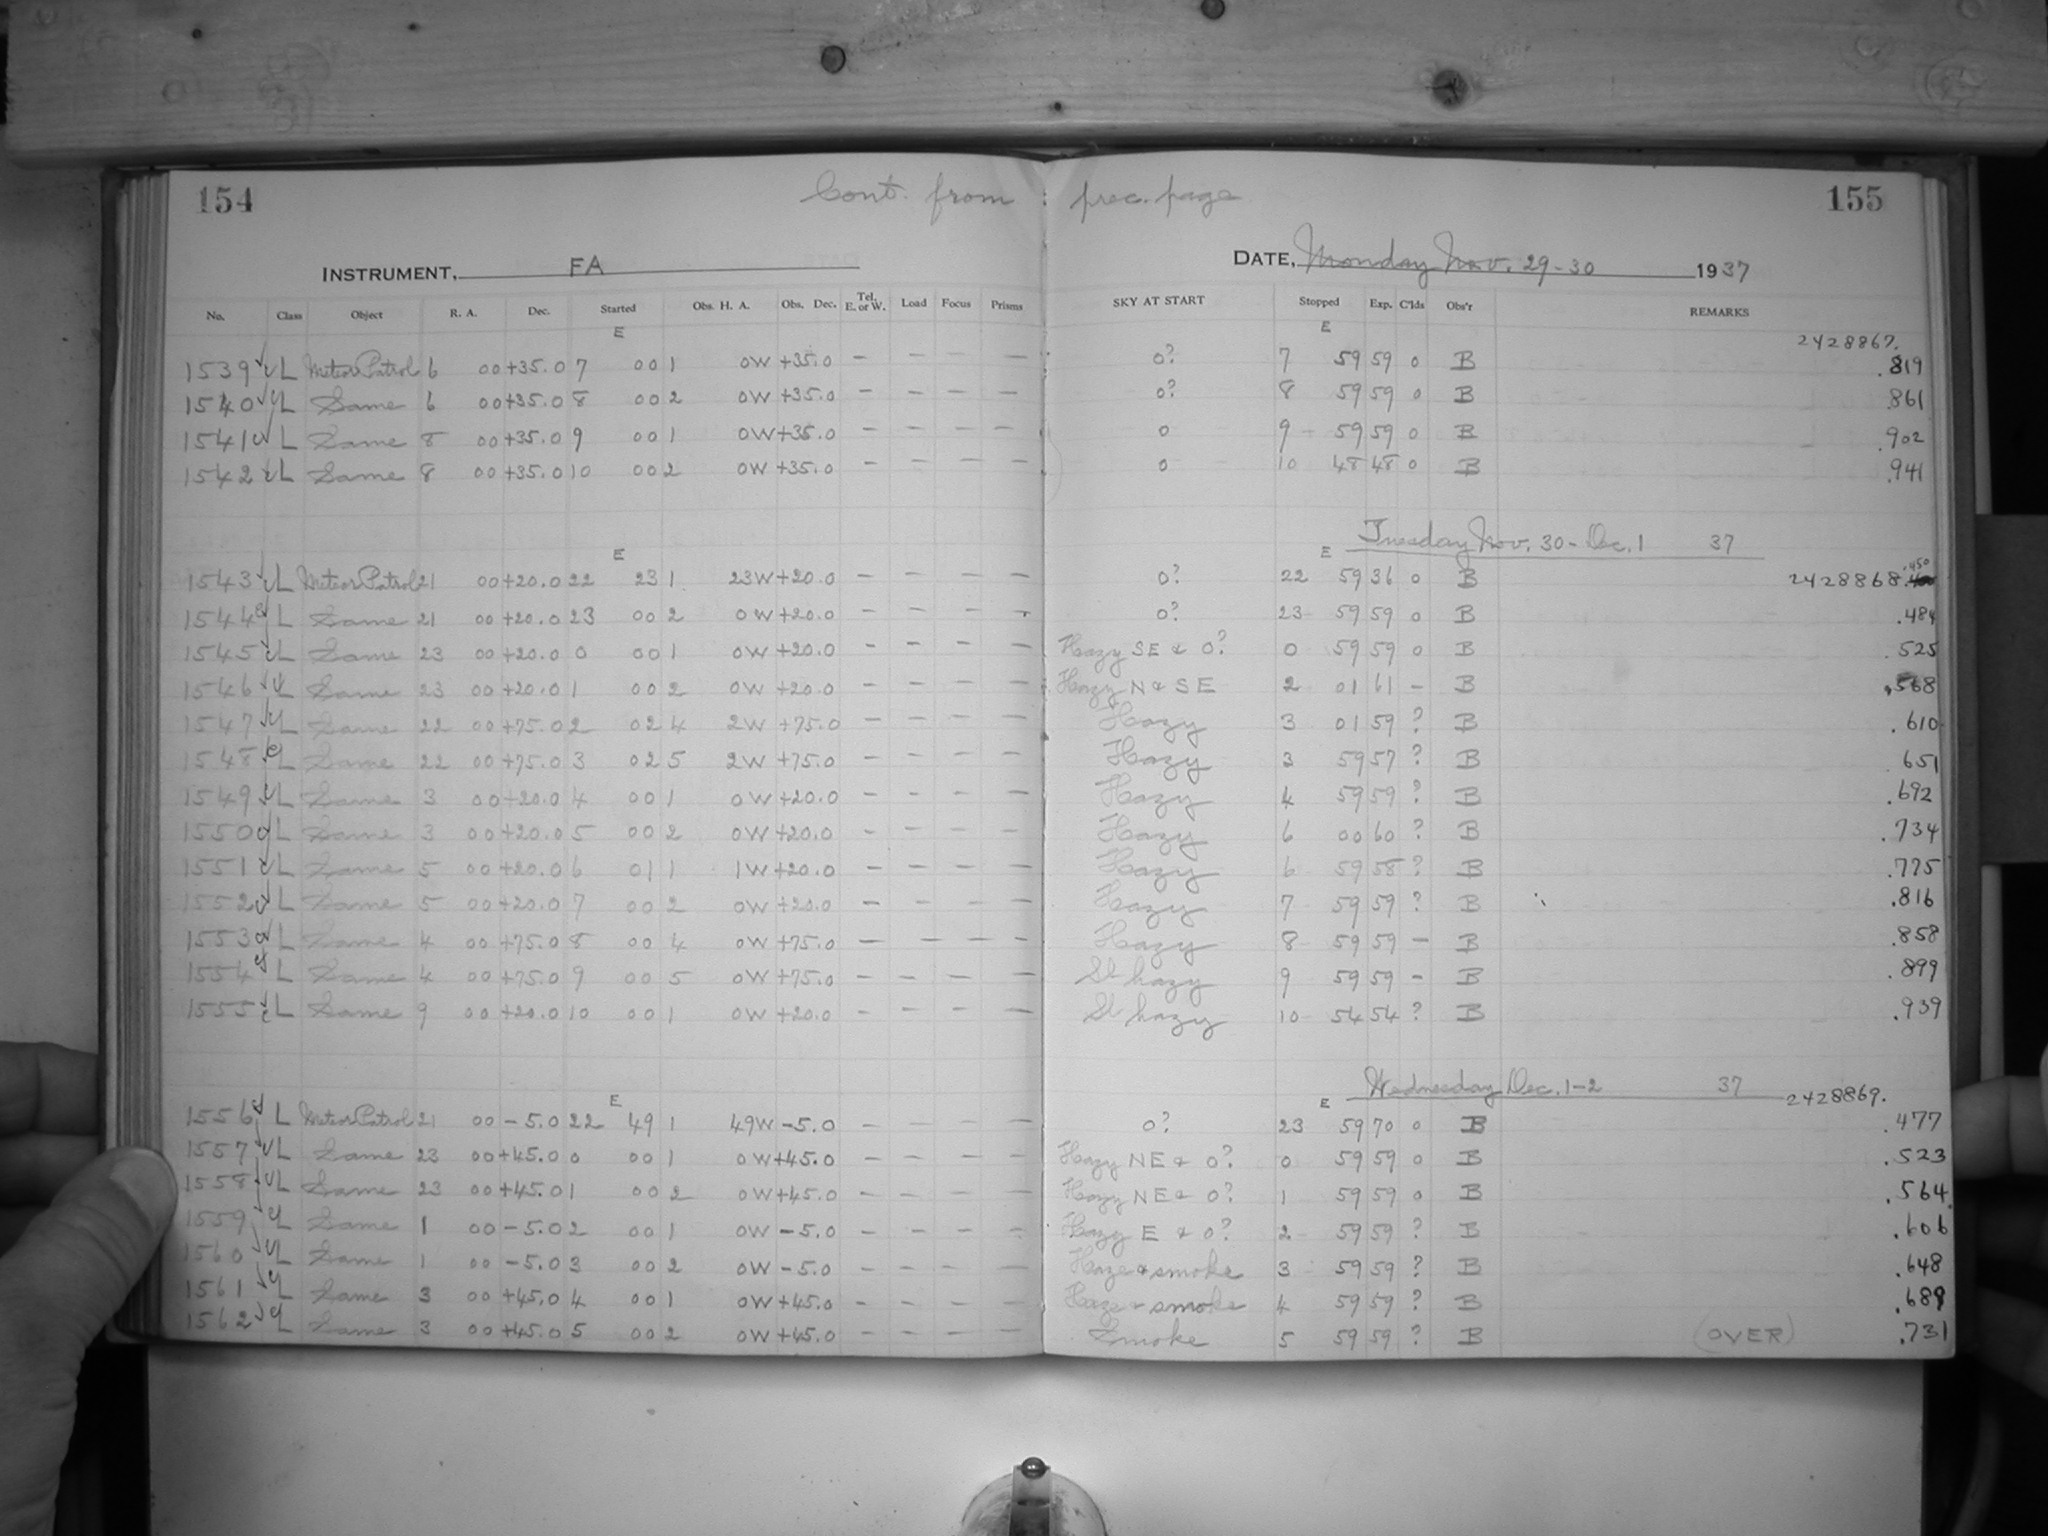 154 Cont. from prec. page 155
INSTRUMENT, FA DATE, Monday Nov. 29-30 1937
No. Class Object R. A. Dec. Started Obs. H. A. Obs. Dec. Tel. E. or W. Load Focus Prisms SKY AT START Stopped Exp. C'lds Obs'r REMARKS
E E 2428867.
1539 L Meteor Patrol 6 00 +35.0 7 00 1 0W +35.0 — — — — 0? 7 59 59 0 B .819
1540 L Same 6 00 +35.0 8 00 2 0W +35.0 — — — — 0? 8 59 59 0 B .861
1541 L Same 8 00 +35.0 9 00 1 0W +35.0 — — — — 0 9 59 59 0 B .902
1542 L Same 8 00 +35.0 10 00 2 0W +35.0 — — — — 0 10 48 48 0 B .941
E E Tuesday Nov. 30 - Dec. 1 37
1543 L Meteor Patrol 21 00 +20.0 22 23 1 23W +20.0 — — — — 0? 22 59 36 0 B 2428868 .450
1544 L Same 21 00 +20.0 23 00 2 0W +20.0 — — — — 0? 23 59 59 0 B .484
1545 L Same 23 00 +20.0 0 00 1 0W +20.0 — — — — Hazy SE & 0? 0 59 59 0 B .525
1546 L Same 23 00 +20.0 1 00 2 0W +20.0 — — — — Hazy N & SE 2 01 61 — B .568
1547 L Same 22 00 +75.0 2 02 4 2W +75.0 — — — — Hazy 3 01 59 ? B .610
1548 L Same 22 00 +75.0 3 02 5 2W +75.0 — — — — Hazy 3 59 57 ? B .651
1549 L Same 3 00 +20.0 4 00 1 0W +20.0 — — — — Hazy 4 59 59 ? B .692
1550 L Same 3 00 +20.0 5 00 2 0W +20.0 — — — — Hazy 6 00 60 ? B .734
1551 L Same 5 00 +20.0 6 01 1 1W +20.0 — — — — Hazy 6 59 58 ? B .775
1552 L Same 5 00 +20.0 7 00 2 0W +20.0 — — — — Hazy 7 59 59 ? B .816
1553 L Same 4 00 +75.0 8 00 4 0W +75.0 — — — — Hazy 8 59 59 — B .858
1554 L Same 4 00 +75.0 9 00 5 0W +75.0 — — — — Sl hazy 9 59 59 — B .899
1555 L Same 9 00 +20.0 10 00 1 0W +20.0 — — — — Sl hazy 10 54 54 ? B .939
E E Wednesday Dec. 1-2 37 2428869.
1556 L Meteor Patrol 21 00 -5.0 22 49 1 49W -5.0 — — — — 0? 23 59 70 0 B .477
1557 L Same 23 00 +45.0 0 00 1 0W +45.0 — — — — Hazy NE & 0? 0 59 59 0 B .523
1558 L Same 23 00 +45.0 1 00 2 0W +45.0 — — — — Hazy NE & 0? 1 59 59 0 B .564
1559 L Same 1 00 -5.0 2 00 1 0W -5.0 — — — — Hazy E & 0? 2 59 59 ? B .606
1560 L Same 1 00 -5.0 3 00 2 0W -5.0 — — — — Haze & smoke 3 59 59 ? B .648
1561 L Same 3 00 +45.0 4 00 1 0W +45.0 — — — — Haze & smoke 4 59 59 ? B .689
1562 L Same 3 00 +45.0 5 00 2 0W +45.0 — — — — Smoke 5 59 59 ? B (OVER) .731